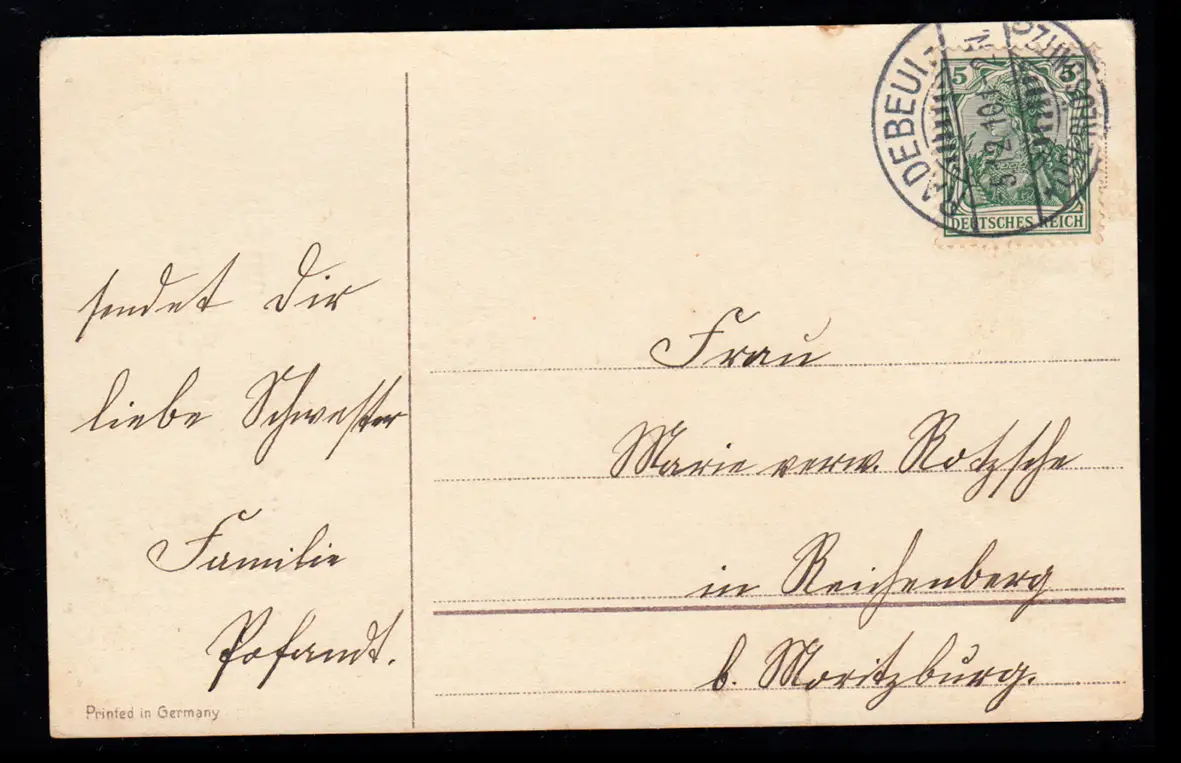 sendet Dir
liebe Schwester
Familie
Pofandt.
Printed in Germany
RADEBEUL-
OBERLÖSSNITZ
5.12.10.1-2N.
5 5
DEUTSCHES REICH
Frau
Marie verw. Rotzsche
in Reichenberg
b. Moritzburg.